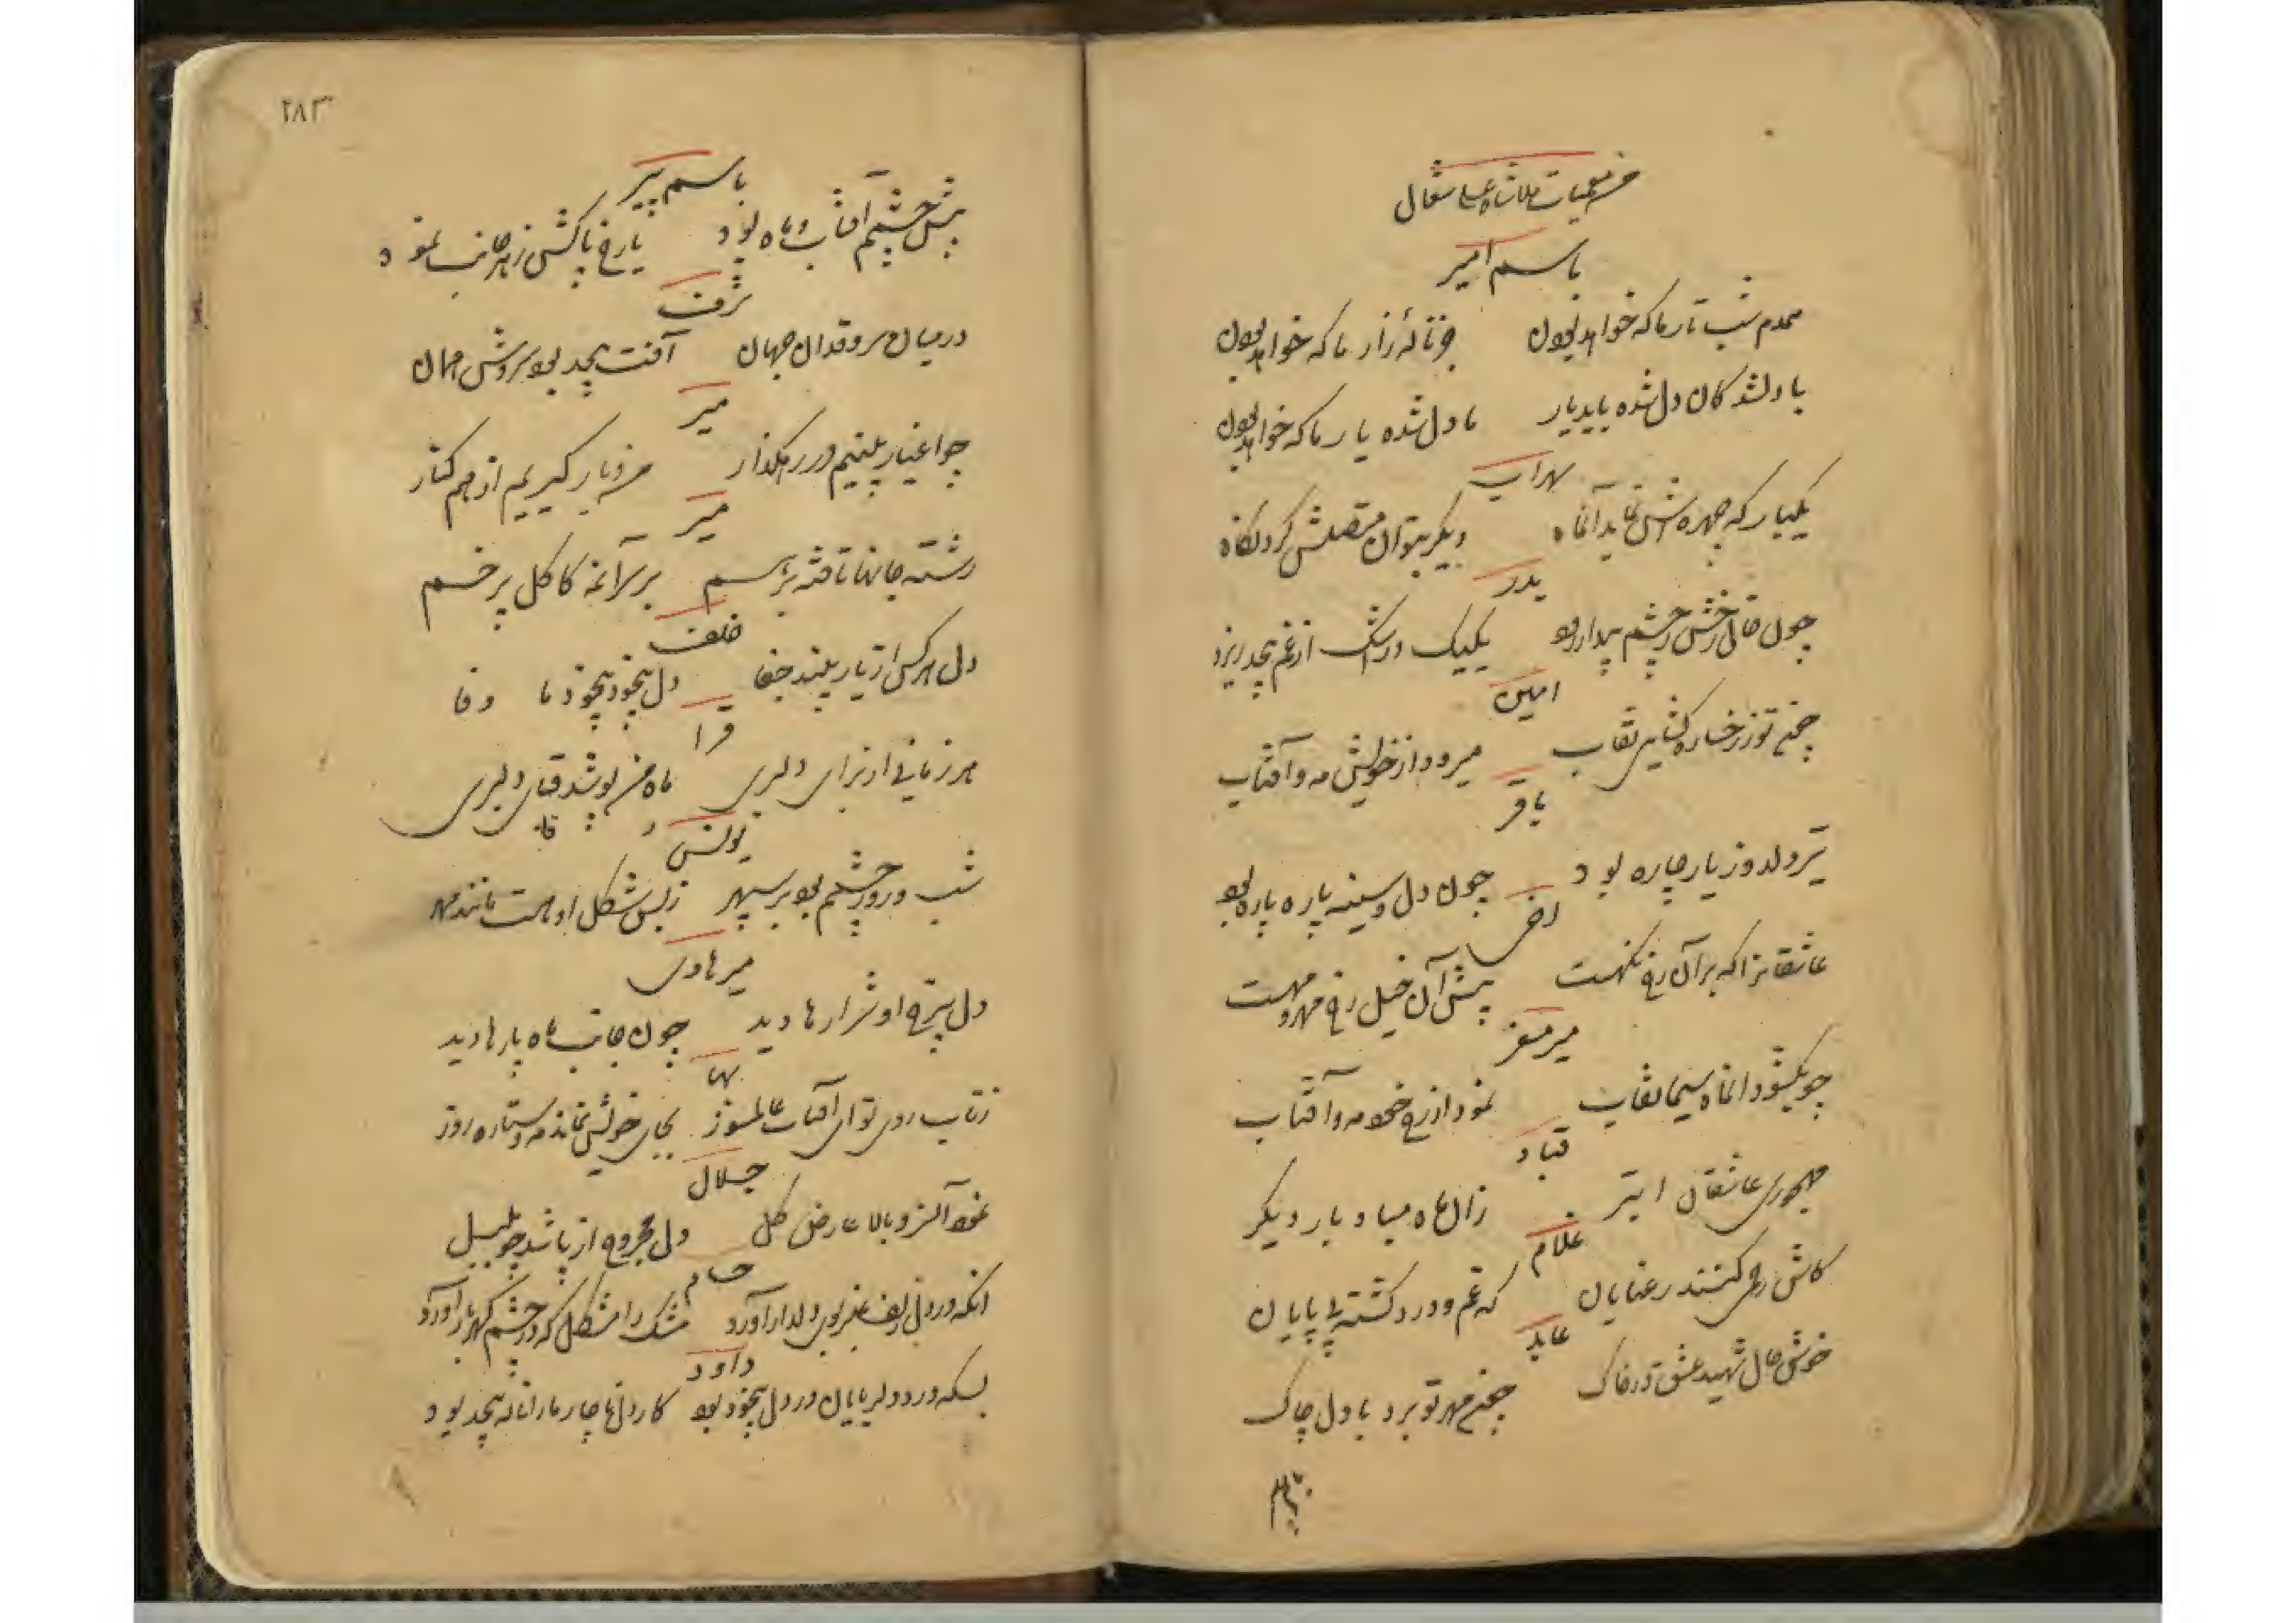 من معمیات ملا شاه علی
باسم امیر
همدم شب تار ما که خواهد بودن جز نالهٔ زار ما که خواهد بودن
با دلشدکان دل شده باید یار ما دل شده یار ما که خواهد بودن
سهراب
یکبار که چهره اش نماید آنماه دیکر بتوان متصلش کرد نکاه
بدر
چون خال رخش ز چشم یکیک در اشک از غم بیحد ریزد
امین
چو تو ز رخساره کشایی نقاب میرود از خویش مه و آفتاب
باقر
تیر دلدوز یار چاره بود چون دل و سینه پاره پاره بود
عاشقانرا که بر آن رخ نکهست پیش آن خیل رخ مهر و مهست
میر
چو بکشود انماه سیما نقاب نمود از رخ خود مه و آفتاب
قباد
مهجوری عاشقان ابتر زان ماه مباد بار دیکر
غلام
کاش رحمی کنند رعنایان که غم و درد کشته بی پایان
عابد
خوش حال شهید عشق در خاک مهر تو برد با دل چاک
باسم
۲۸۳
باسم پیر
پیش چشمم آفتاب و ماه بود تا رخ پاکش ز هر جانب نمود
شرف
در میان سروقدان جهان آفت بیحد بود سروش
میر
چو اغیار بینیم در رهکذار من و یار کیریم از هم کنار
میر
رشته جانها تافته بر سر آنمه کاکل پر خم
خلف
دل هر کس از یار بیند جفا دل بیخود بیخود ما وفا
قرا
هر زمانی از برای دلبری ماه من پوشد قبای دلبری
یونس
شب و روز چشمم بود بر سپهر ز بس شکل او هست مانند مهر
میر هادی
دل بیرخ او شرارها دید چون جانب ماه بارها دید
بها
ز تاب روی تو ای آفتاب عالمسوز بجای خویش نماند مه و ستاره روز
جلال
نمود آن سرو بالا عارض کل دل مجروح از پا شد چو بلبل
انکه در دل زلف عنبر بوی دلدار آورد مشک را مشکل که در چشم کهربار آورد
داود
بسکه درد دلبر در دل بیخود بود کار دل ناچار ما را ناله بیحد بود